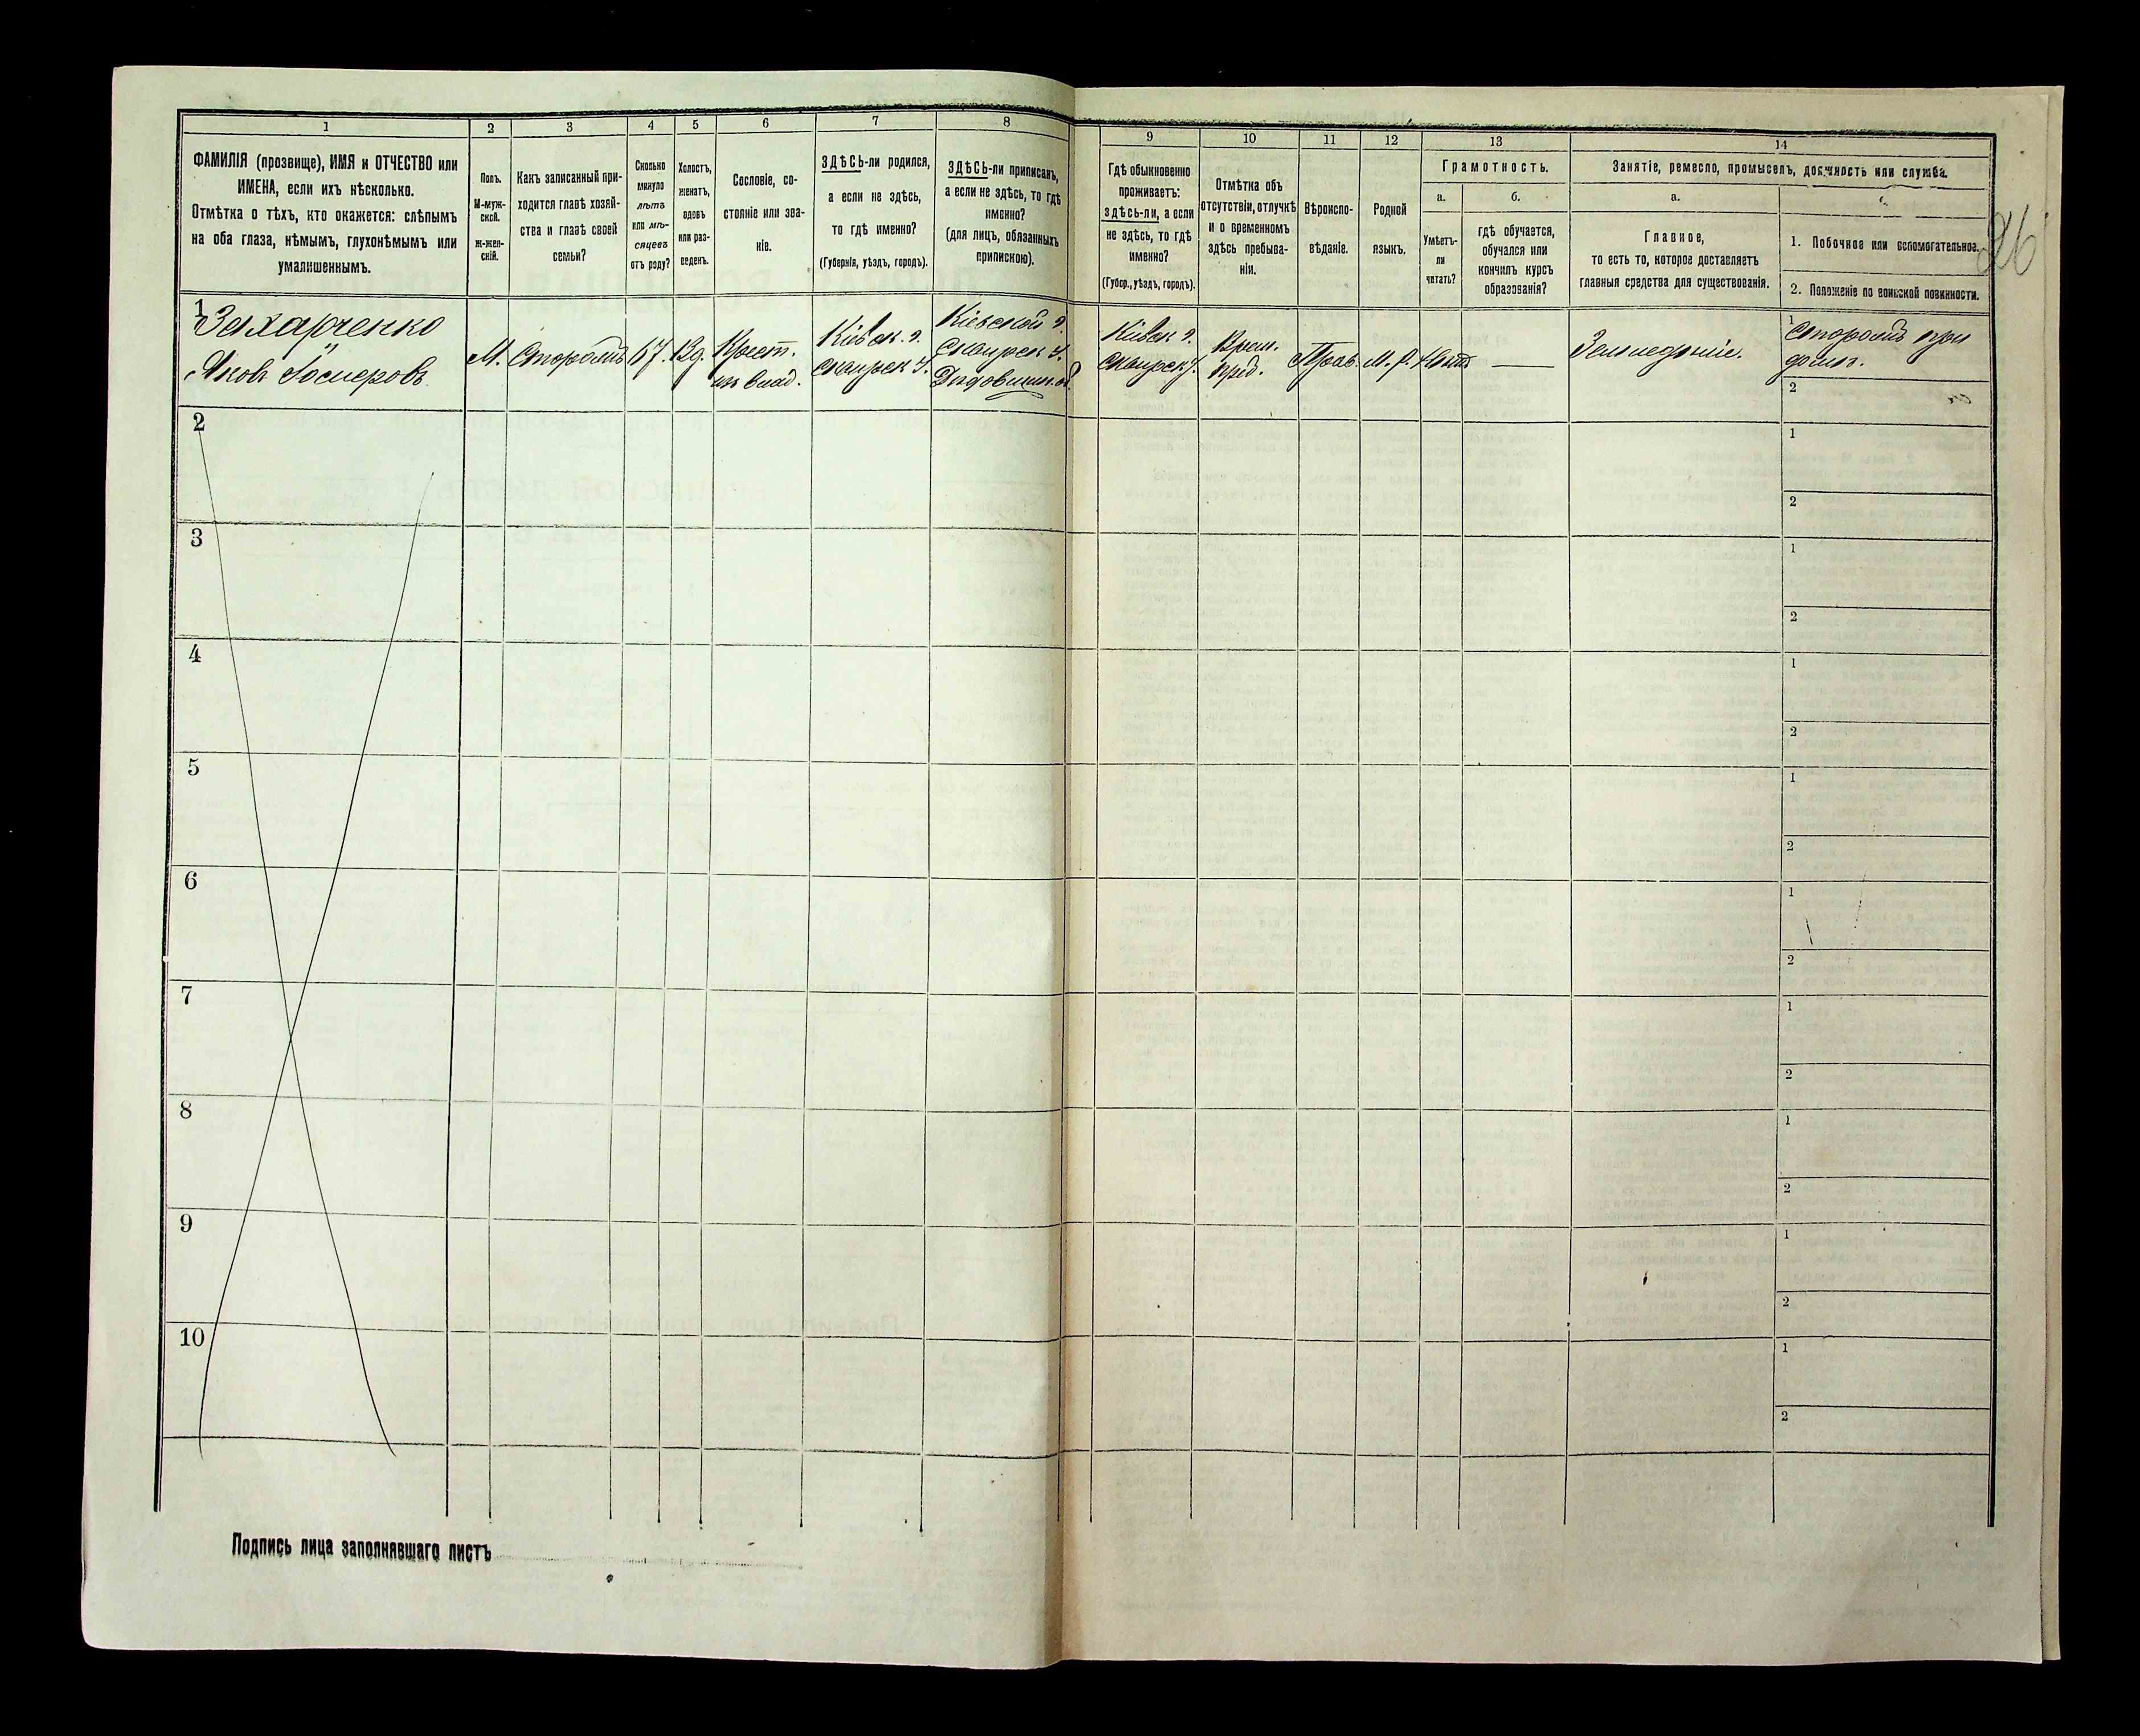 1
2
3
4
5
6
7
8
ФАМИЛІЯ (прозвище), ИМЯ и ОТЧЕСТВО или
ИМЕНА, если ихъ нѣсколько.
Отмѣтка о тѣхъ, кто окажется: слѣпымъ
на оба глаза, нѣмымъ, глухонѣмымъ или
умалишеннымъ.
Полъ.
М-муж-
ской.
ж-жен-
скій.
Какъ записанный при-
ходится главѣ хозяй-
ства и главѣ своей
семьи?
Сколько
минуло
лѣтъ
или мѣ-
сяцевъ
отъ роду?
Холостъ,
женатъ,
вдовъ
или раз-
веденъ.
Сословіе, со-
стояніе или зва-
ніе.
ЗДѢСЬ-ли родился,
а если не здѣсь,
то гдѣ именно?
(Губернія, уѣздъ, городъ).
ЗДѢСЬ-ли приписанъ,
а если не здѣсь, то гдѣ
именно?
(для лицъ, обязанныхъ
припискою).
9
10
11
12
13
14
Гдѣ обыкновенно
проживаетъ:
здѣсь-ли, а если
не здѣсь, то гдѣ
именно?
(Губер., уѣздъ, городъ).
Отмѣтка объ
отсутствіи, отлучкѣ
и о временномъ
здѣсь пребыва-
ніи.
Вѣроиспо-
вѣданіе.
Родной
языкъ.
Грамотность.
а.
б.
Умѣетъ-
ли
читать?
гдѣ обучается,
обучался или
кончилъ курсъ
образованія?
Занятіе, ремесло, промыселъ, должность или служба.
а.
Главное,
то есть то, которое доставляетъ
главныя средства для существованія.
1. Побочное или вспомогательное.
2. Положеніе по воинской повинности.
26
1
Захарченко
Яковъ
М.
Сторожъ
67.
Вд.
Крест.
изъ влад.
Кіевск. г.
Сквирск. у.
Кіевской г.
Сквирск у.
Кіевск г.
Сквирск у.
Врем.
преб.
Прав.
М. р.
Нѣтъ
—
Земледѣліе.
1
Сторожъ при
домѣ.
2
2
1
2
3
1
2
4
1
2
5
1
2
6
1
2
7
1
2
8
1
2
9
1
2
10
1
2
Подпись лица заполнявшаго листъ